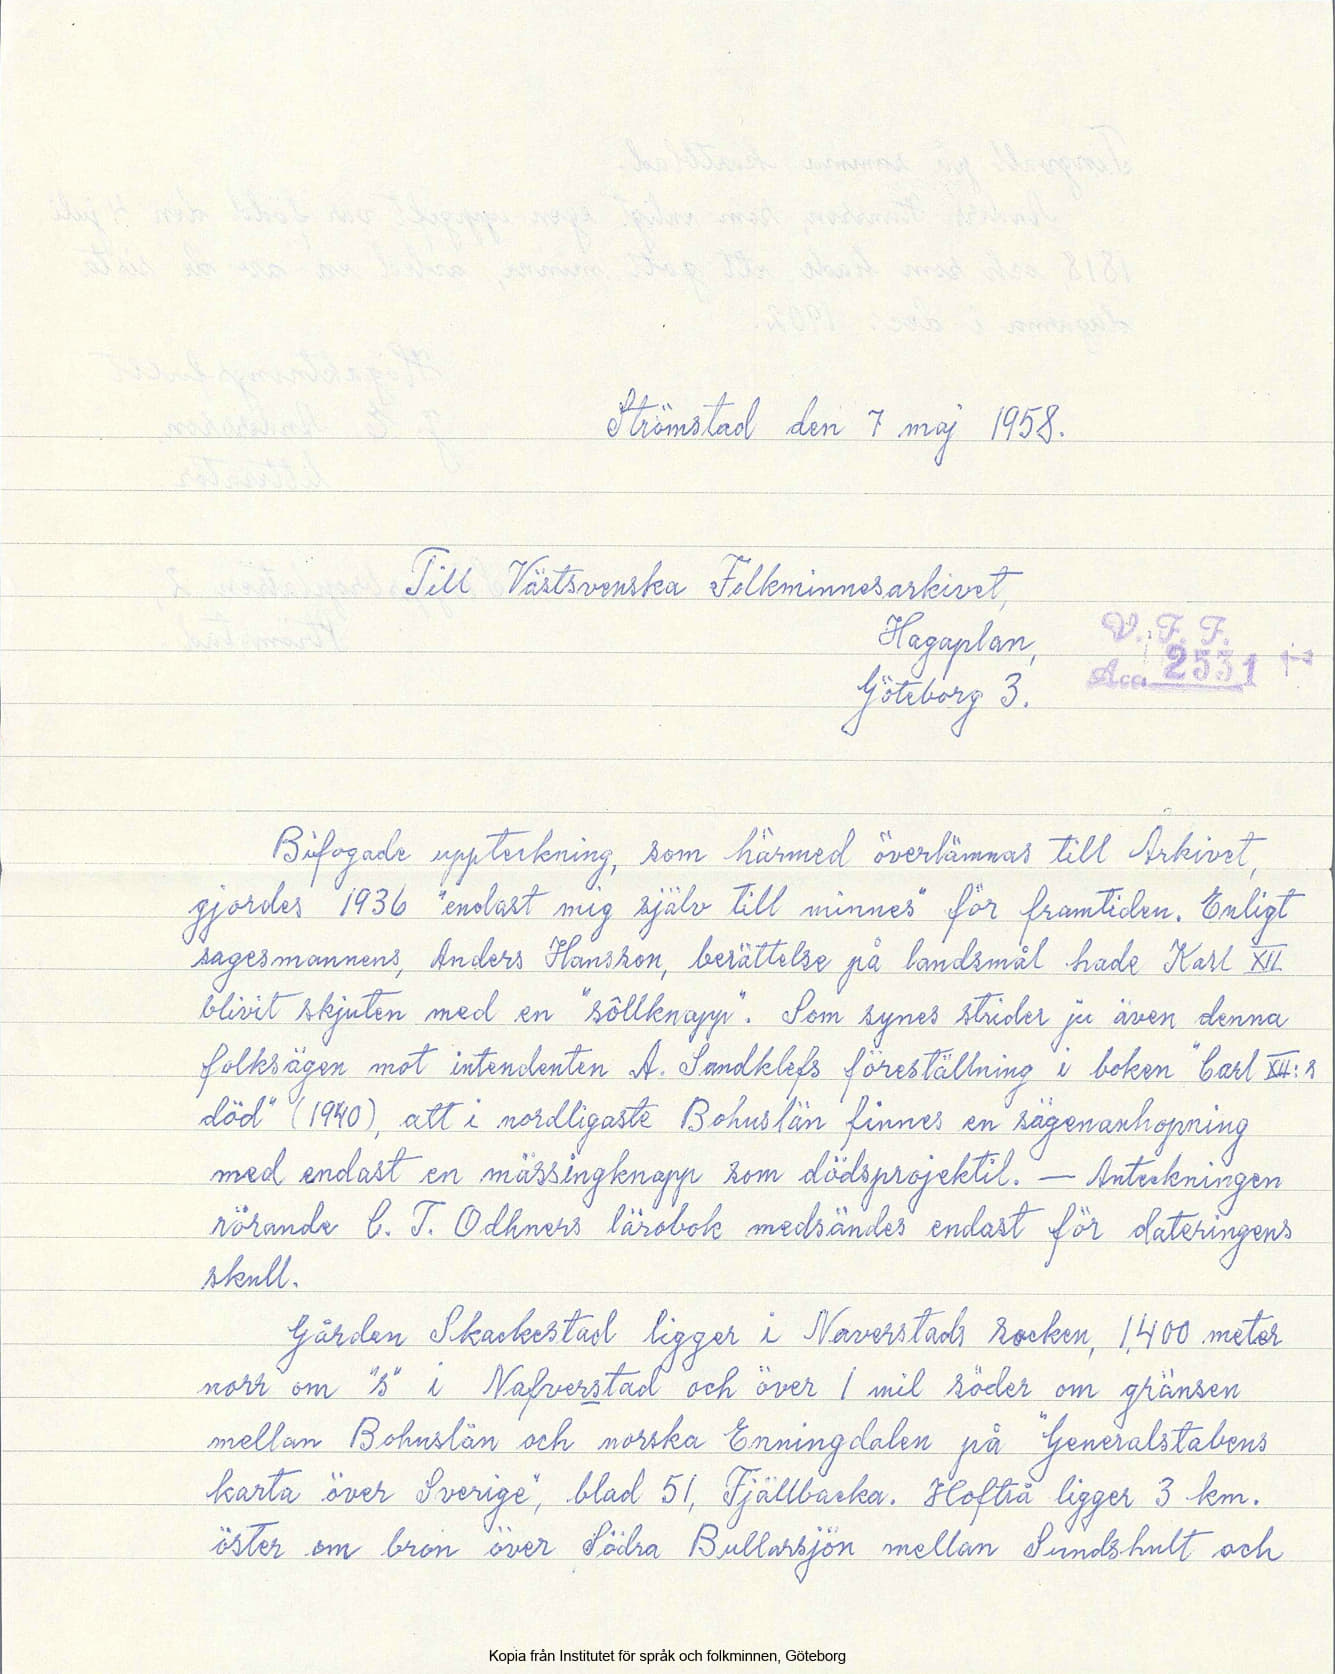 Strömstad den 7 maj 1958.
Till Västsvenska Folkminnesarkivet,
Hagaplan,
Göteborg 3.
V. F. F.
Acc. 2531
Bifogade uppteckning, som härmed överlämnas till Arkivet,
gjordes 1936 "endast mig själv till minnes" för framtiden. Enligt
sagesmannens, Anders Hansson, berättelse på landsmål hade Karl XII
blivit skjuten med en "sôllknapp". Som synes strider ju även denna
folksägen mot intendenten A. Sandklefs föreställning i boken "Carl XII:s
död" (1940), att i nordligaste Bohuslän finnes en sägenanhopning
med endast en mässingknapp som dödsprojektil. — Anteckningen
rörande C. T. Odhners lärobok medsändes endast för dateringens
skull.
Gården Skackestad ligger i Naverstads socken, 1,400 meter
norr om "s" i Nafverstad och över 1 mil söder om gränsen
mellan Bohuslän och norska Enningdalen på "Generalstabens
karta över Sverige", blad 51, Fjällbacka. Hofträ ligger 3 km.
öster om bron över Södra Bullarsjön mellan Sundshult och
Kopia från Institutet för språk och folkminnen, Göteborg